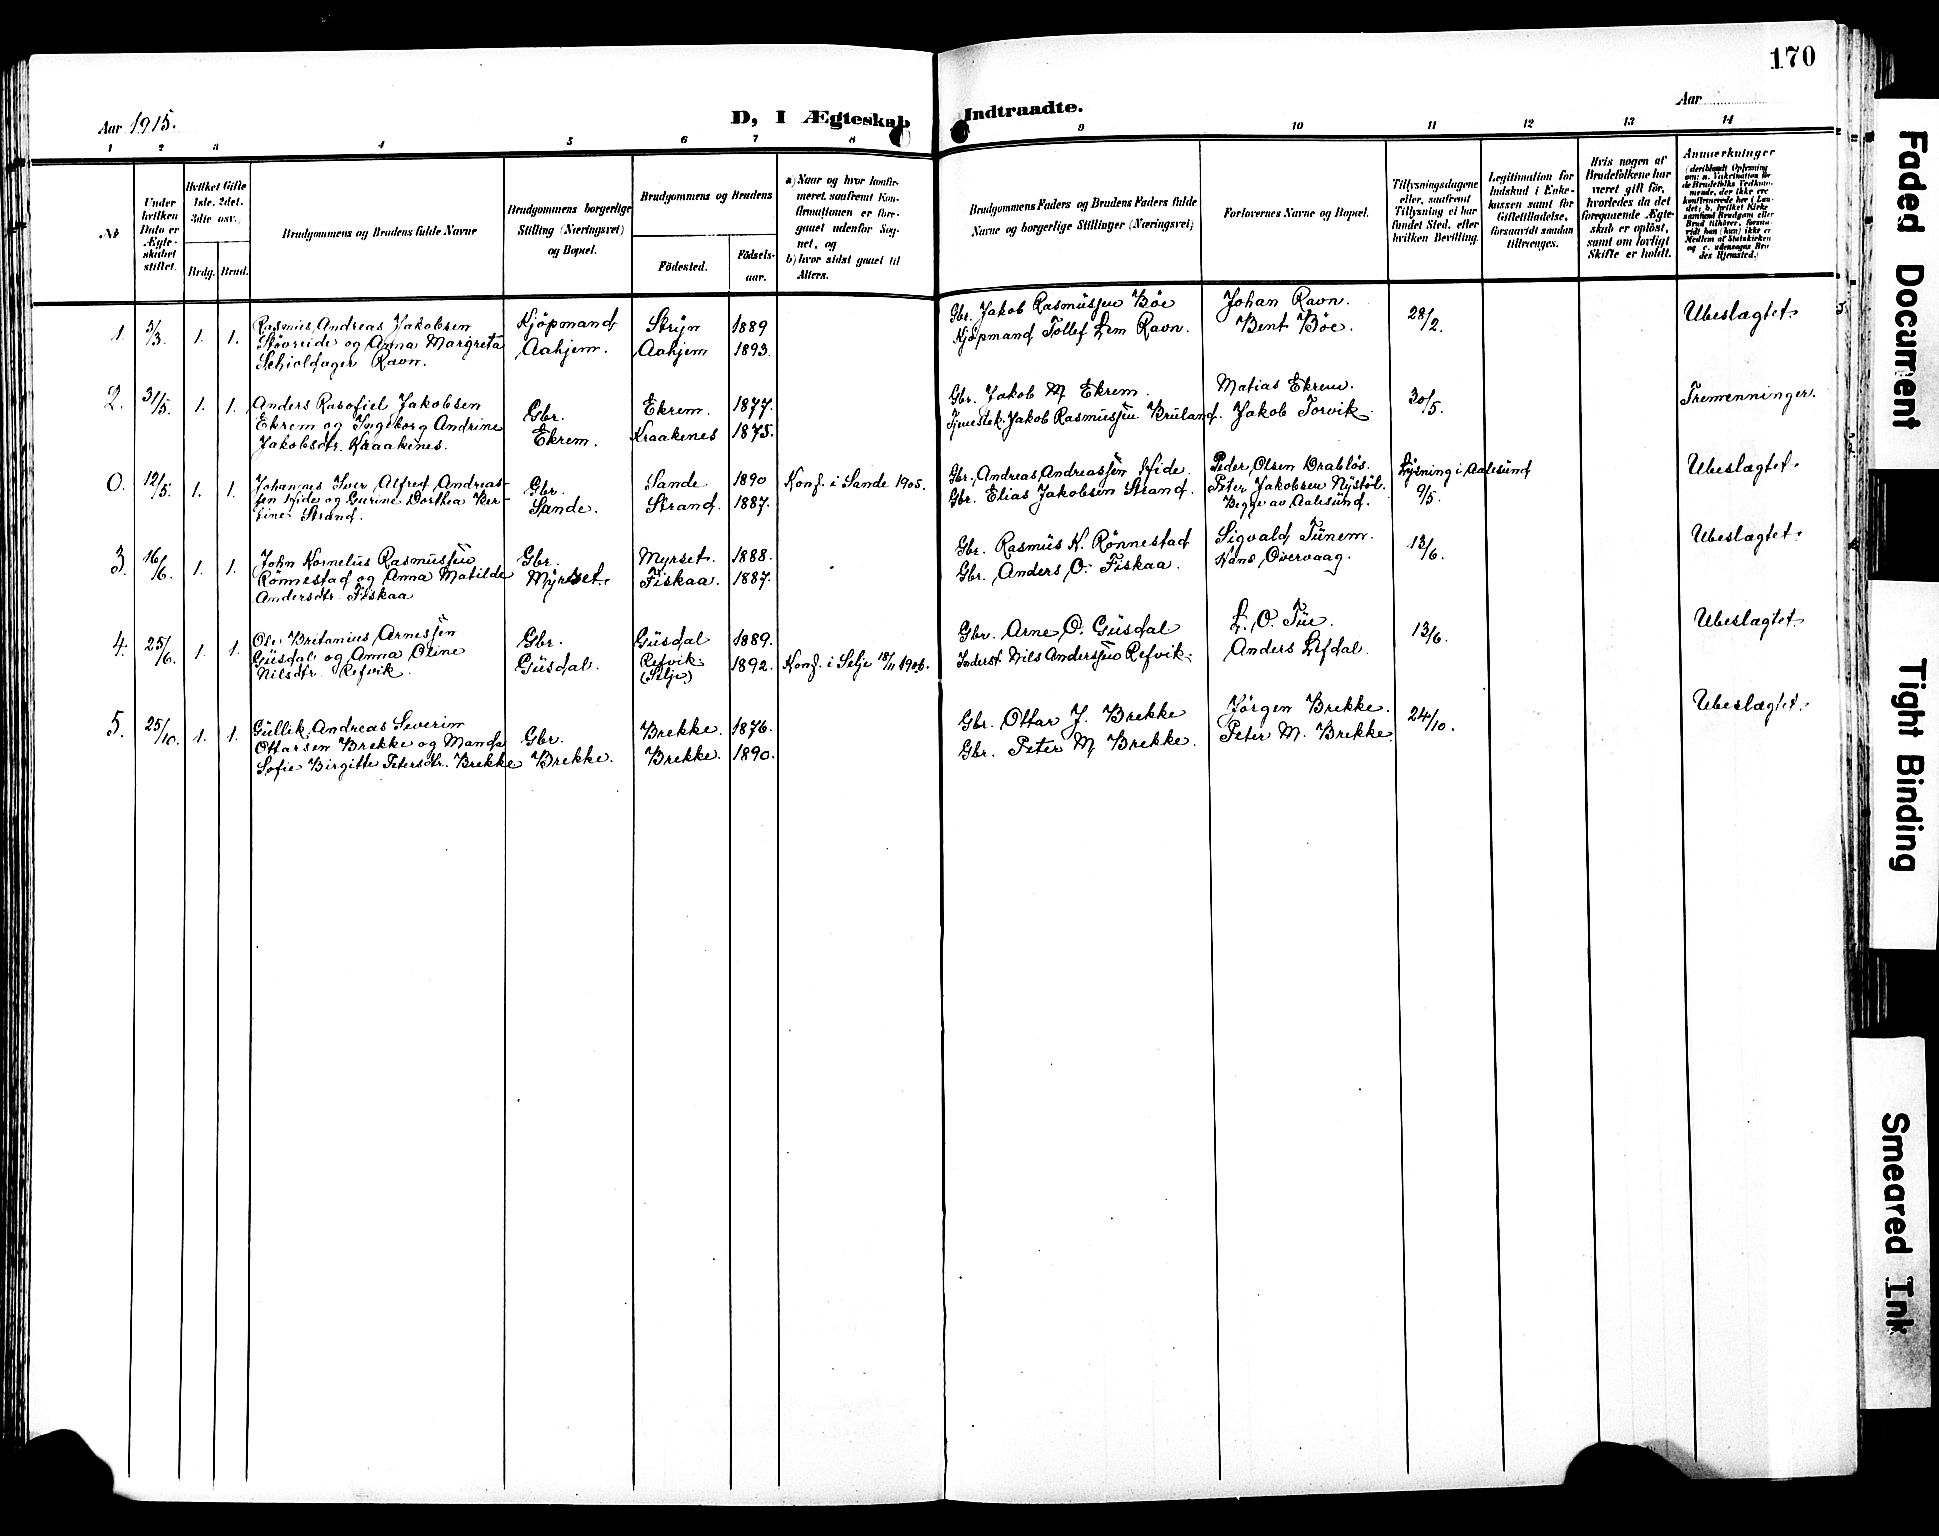 170
Aar 1915.
D, I Ægteskab Indtraadte.
Aar
1 2 3 4 5 6 7 8 9 10 11 12 13 14
No
Under
hvilken
Dato er
Ægte-
skabet
stiftet.
Hvilket Gifte
1ste, 2det,
3die osv.
Brdg. Brud.
Brudgommens og Brudens fulde Navne
Brudgommens borgerlige
Stilling (Næringsvei)
og Bopæl.
Brudgommens og Brudens
Födested.
Födsels-
aar.
a) Naar og hvor konfir-
meret, saafremt Kon-
firmationen er fore-
gaaet udenfor Sog-
net, og
b) hvor sidst gaaet til
Alters.
Brudgommens Faders og Brudens Faders fulde
Navne og borgerlige Stillinger (Næringsvei)
Forlovernes Navne og Bopæl.
Tillysningsdagene
eller, saafremt
Tillysning ei har
fundet Sted, efter
hvilken Bevilling.
Legitimation for
Indskud i Enke-
kassen samt for
Giftetilladelse,
forsaavidt saadan
tiltrænges.
Hvis nogen af
Brudefolkene har
været gift før,
hvorledes da det
foregaaende Ægte-
skab er opløst,
samt om lovligt
Skifte er holdt.
Anmerkninger
1. 5/3 1. 1. Rasmus Andreas Jakobsen
Støvreide og Anna Margreta
Schieldager Ravn.
Kjöpmand
Aahjem.
Stryn 1889
Aahjem 1893.
Gbr. Jakob Rasmussen Böe
Kjöpmand Tollef Lem Ravn.
Johan Ravn.
Bent Böe.
28/2.
Ubeslægtet.
2. 31/5. 1. 1. Anders Rasofiel Jakobsen
Ekrem og Ingeborg Andrine
Jakobsdtr. Kraakenes.
Gbr.
Ekrem.
Ekrem. 1877.
Kraakenes 1875.
Gbr. Jakob M Ekrem.
Jakob Rasmussen Bruland.
Matias Ekrem.
Jakob Torvik.
30/5.
Tremenninger.
0. 12/5. 1. 1. Johannes Iver Alfred Andreas-
sen Hide og Gurine Dorthea Ber-
tine Strand.
Gbr.
Sande.
Sande 1890
Strand. 1887.
Konf. i Sande 1905.
Gbr. Andreas Andreassen Hide.
Gbr. Elias Jakobsen Strand.
Peder Olsen Drabløs.
Peter Jakobsen Nystøl.
Begge av Aalesund.
Lysning i Aalesund
9/5.
Ubeslægtet.
3. 16/6. 1. 1. John Kornelius Rasmussen
Rönnestad og Anna Matilde
Andersdtr. Fiskaa
Gbr.
Myrset.
Myrset. 1888.
Fiskaa. 1887.
Gbr. Rasmus K. Rönnestad
Gbr. Anders O. Fiskaa.
Sigvald Tunem.
Hans Overvaag.
13/6.
Ubeslægtet.
4. 25/6. 1. 1. Ole Britanius Arnessen
Gusdal og Anna Oline
Nilsdtr. Refvik.
Gbr.
Gusdal.
Gusdal 1889.
Refvik 1892.
(Selje)
Konf. i Selje 18/11 1906.
Gbr. Arne O. Gusdal
Inderst Nils Anderssen Refvik.
L. O. Tue.
Anders Lefdal.
13/6.
Ubeslægtet.
5. 25/10. 1. 1. Gullik Andreas Severin
Ottarsen Brekke og Manda
Sofie Birgitte Petersdtr. Brekke
Gbr.
Brekke.
Brekke. 1876.
Brekke. 1890.
Gbr. Ottar J. Brekke
Gbr. Peter M Brekke.
Jörgen Brekke.
Peter M. Brekke.
24/10.
Ubeslægtet.
Faded Document
Tight Binding
Smeared Ink